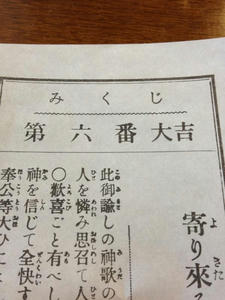 みくじ
第六番大吉
寄り來る
此御諭しの神歌の
人を憐み思召て人
〇歡喜ごと有べし
神を信じて全快す
奉公等大ひに